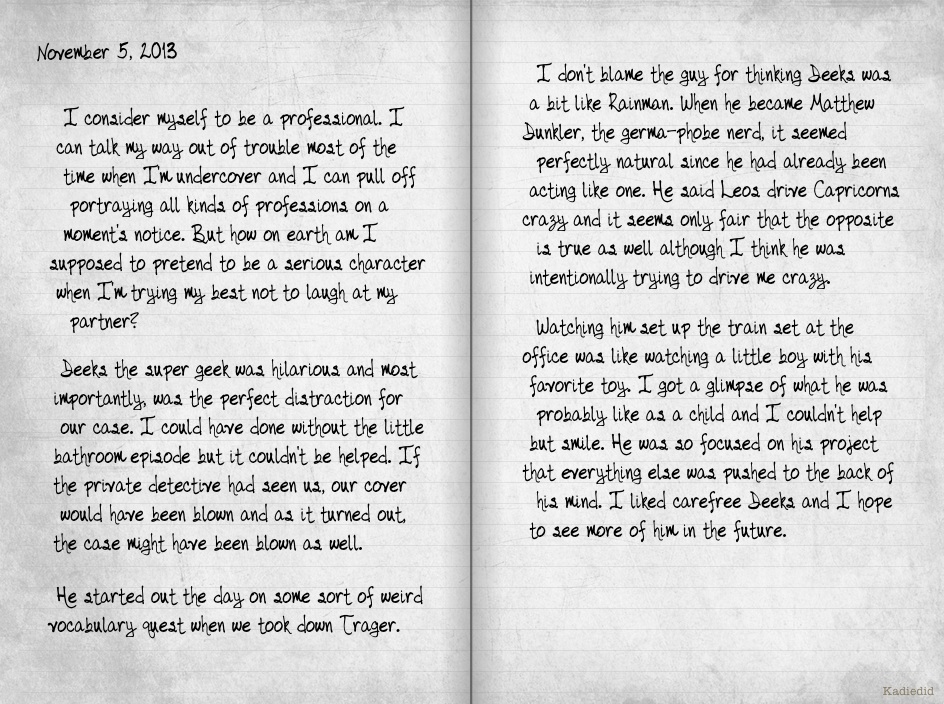 November 5, 2013
I consider myself to be a professional. I
can talk my way out of trouble most of the
time when I'm undercover and I can pull off
portraying all kinds of professions on a
moment's notice. But how on earth am I
supposed to pretend to be a serious character
when I'm trying my best not to laugh at my
partner?
Deeks the super geek was hilarious and most
importantly, was the perfect distraction for
our case. I could have done without the little
bathroom episode but it couldn't be helped. If
the private detective had seen us, our cover
would have been blown and as it turned out,
the case might have been blown as well.
He started out the day on some sort of weird
vocabulary quest when we took down Trager.
I don't blame the guy for thinking Deeks was
a bit like Rainman. When he became Matthew
Dunkler, the germa-phobe nerd, it seemed
perfectly natural since he had already been
acting like one. He said Leos drive Capricorns
crazy and it seems only fair that the opposite
is true as well although I think he was
intentionally trying to drive me crazy.
Watching him set up the train set at the
office was like watching a little boy with his
favorite toy. I got a glimpse of what he was
probably like as a child and I couldn't help
but smile. He was so focused on his project
that everything else was pushed to the back of
his mind. I liked carefree Deeks and I hope
to see more of him in the future.
Kadiedid